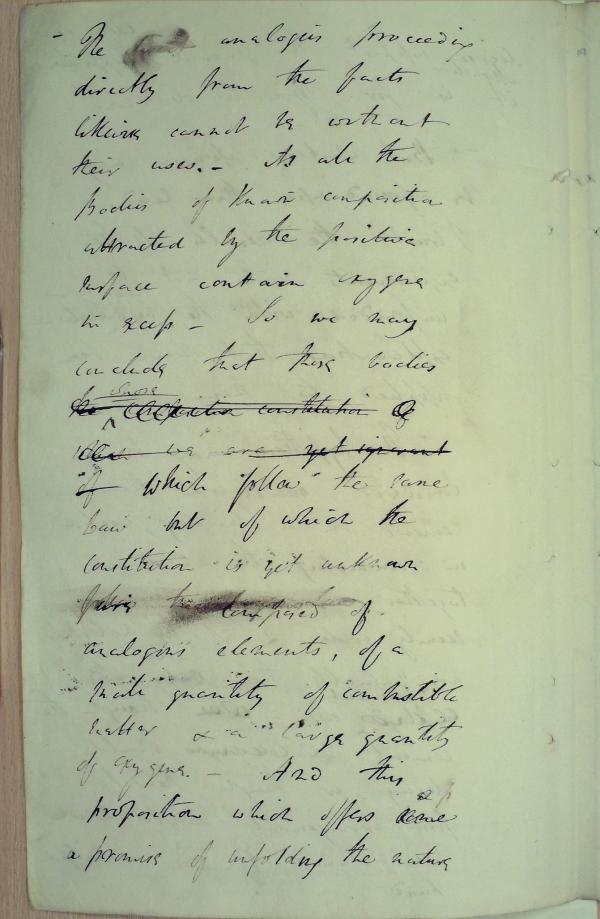 - The analogies proceeding
directly from the facts
likewise cannot be without
their uses. - As all the
Bodies of known composition
attracted by the positive
surface contain oxygene
in excess - So we may
conclude that those bodies
whose
the composition constitution of
which we are yet ignorant
of which "follow" the same
law but of which the
constitution is yet unknown
composed of
analogous elements, of a
small quantity of combustible
matter & a large quantity
of oxygene. - And this
proposition which offers
a promise of unfolding the nature